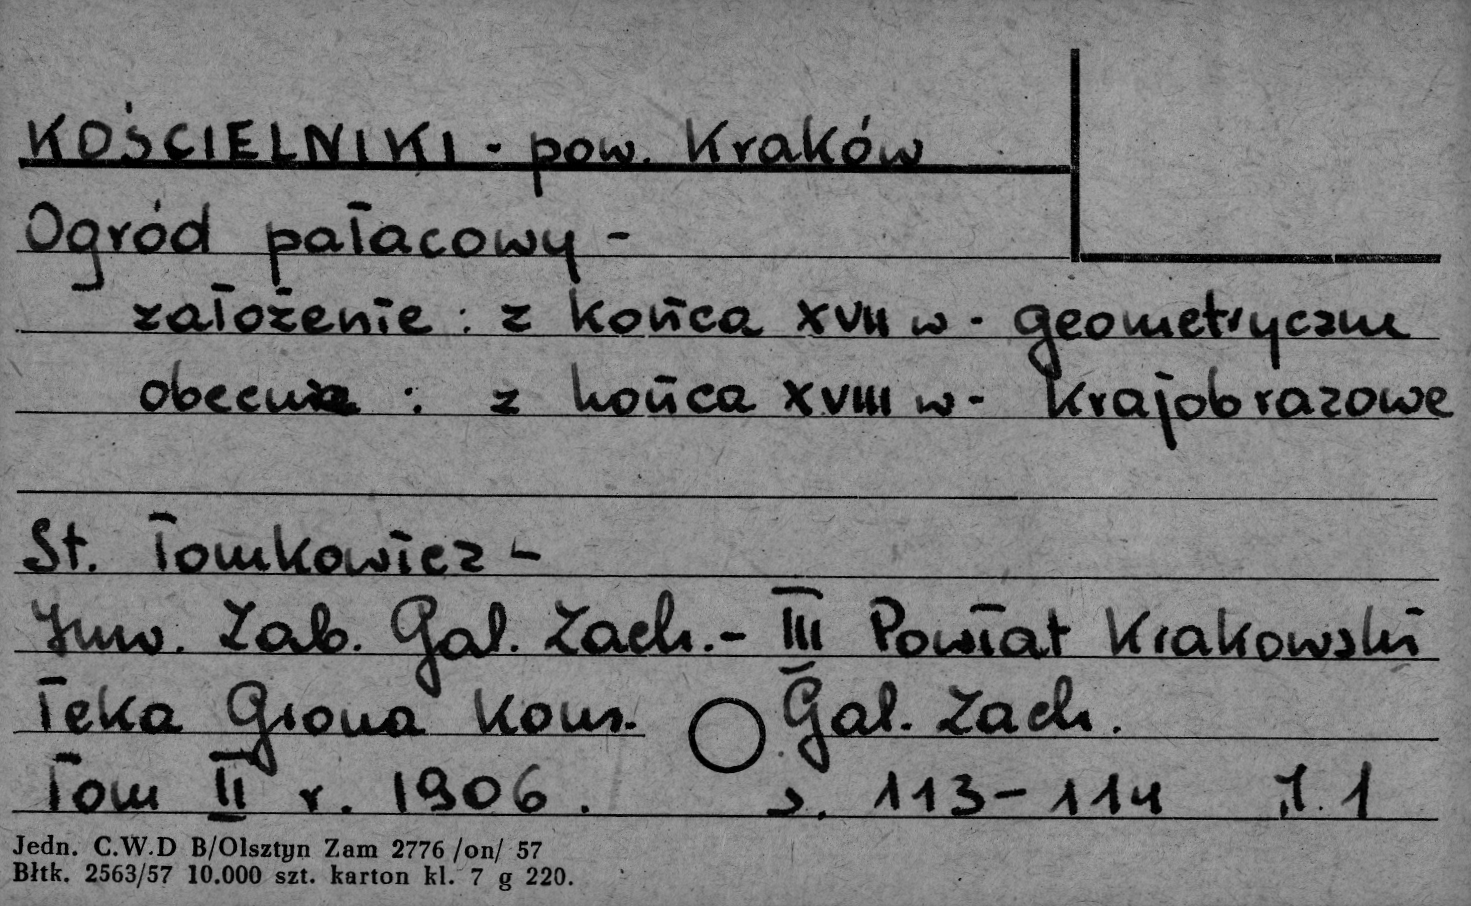 KOŚCIELNIKI - pow. Kraków
Ogród pałacowy -
założenie : z końca XVII w - geometryczne
obecnie : z końca XVIII w - krajobrazowe
St. Tomkowicz -
Inw. Zab. Gal. Zach. - III Powiat Krakowski
Teka Grona Kons. Gal. Zach.
Tom II r. 1906 . s. 113-114 , J. 1
Jedn. C.W.D B/Olsztyn Zam 2776 /on/ 57
Błtk. 2563/57 10.000 szt. karton kl. 7 g 220.